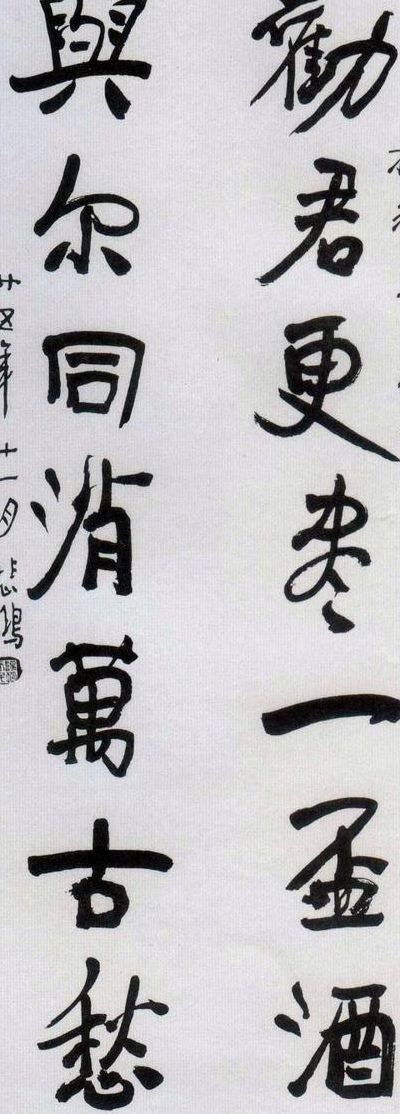 勸君更尽一盃酒
與尔同消萬古愁
廿五年十一月悲鴻